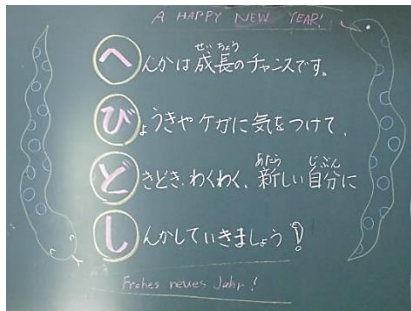 A HAPPY NEW YEAR!
へんかは成長のチャンスです。
せいちょう
びょうきやケガに気をつけて、
どきどき、わくわく、新しい自分に
あたら じぶん
しんかしていきましょう!
Frohes neues Jahr!